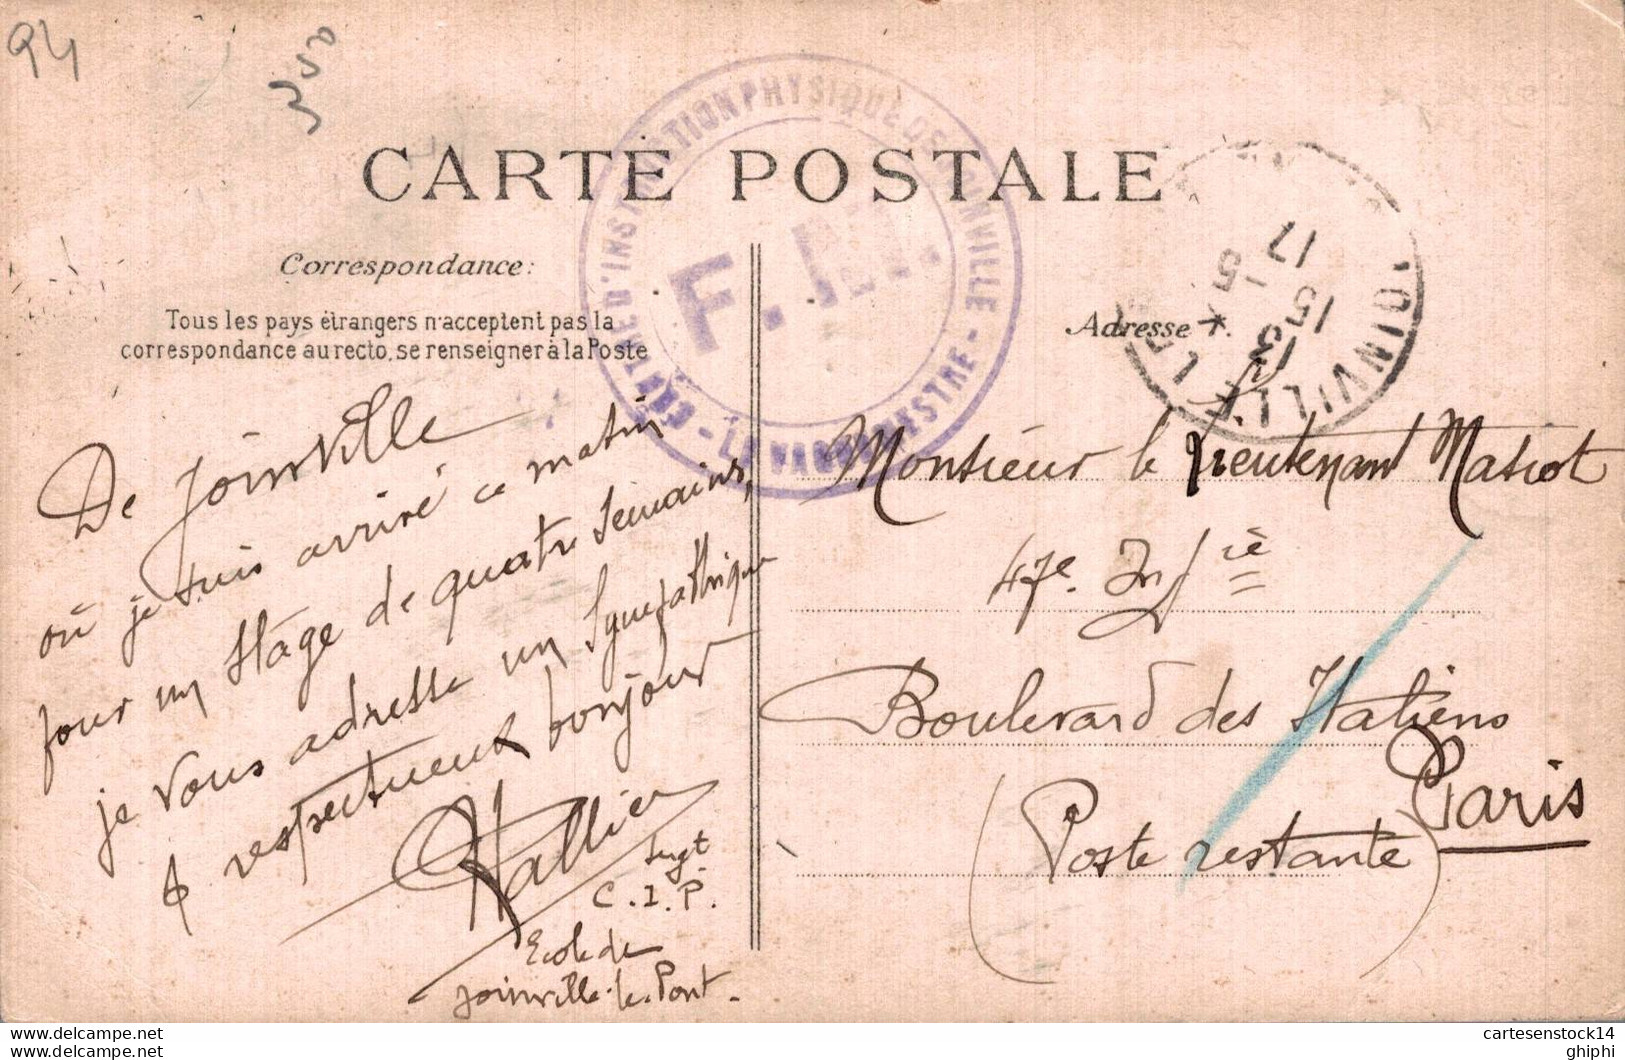 94
CARTE POSTALE
CENTRE D'INSTRUCTION PHYSIQUE DE JOINVILLE - LE VAGUEMESTRE -
F. M.
JOINVILLE LE
17
5 - 5
15
Correspondance:
Tous les pays étrangers n'acceptent pas la
correspondance au recto, se renseigner à la Poste
De Joinville
où je suis arrivé ce matin
pour un stage de quatre semaines,
je vous adresse un sympathique
& respectueux bonjour
Hallier
sergt
C.I.P.
Ecole de
Joinville-le-Pont.
Adresse
Monsieur le Lieutenant Matiot
47e. Infie
Boulevard des Italiens
Paris
(Poste restante)
www.delcampe.net
cartesenstock14
www.delcampe.net
ghiphi